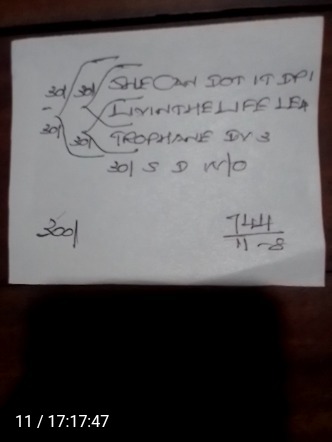 30/ 30/ SHE CAN DOT IT DP1
LIVINTHELIFE LEA
30/ 30/ TROPHANE DV 3
30/ S D W/O
300/
744
11-8
11 / 17:17:47